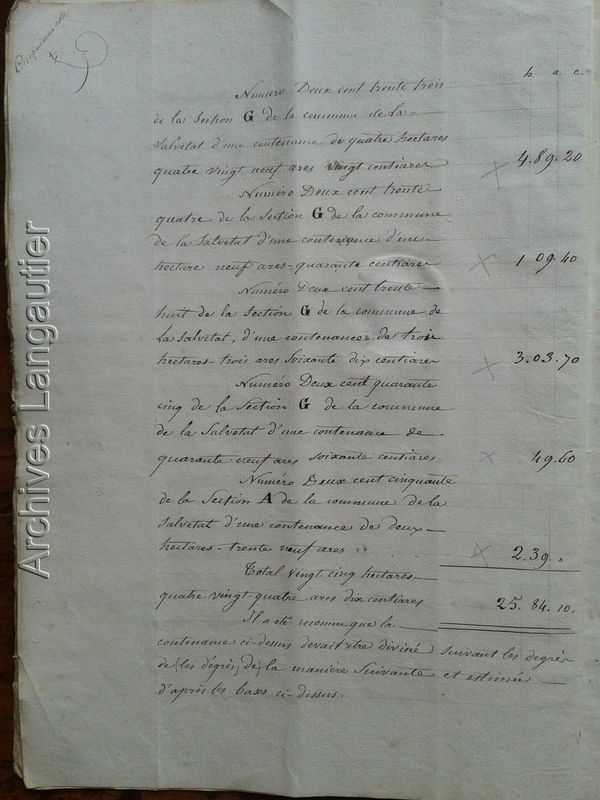 h a c.
Numero Deux cent trente trois
de la Section G de la commune de la
Salvetat d'une contenance de quatre hectares
quatre vingt neuf ares vingt centiares 4.89.20
Numéro Deux cent trente
quatre de la Section G de la commune
de la Salvetat d'une contenance d'un
hectare neuf ares quarante centiares 1 09.40
Numéro Deux cent trente
huit de la Section G de la commune de
la Salvetat, d'une contenance de trois
hectares trois ares Soixante dix centiares 3.03.70
Numéro Deux cent quarante
cinq de la Section G de la commune
de la Salvetat d'une contenance de
quarante neuf ares soixante centiares 49.60
Numéro Deux cent cinquante
de la Section A de la commune de la
Salvetat d'une contenance de deux
hectares trente neuf ares 2.39. "
Total vingt cinq hectares
quatre vingt quatre ares dix centiares 25.84.10.
Il a été reconnu que la
contenance ci-dessus devait être divisée suivant les degrés
de (les dégrés, de) la manière Suivante et estimée
d'après les bases ci-dessus.
Archives Langautier